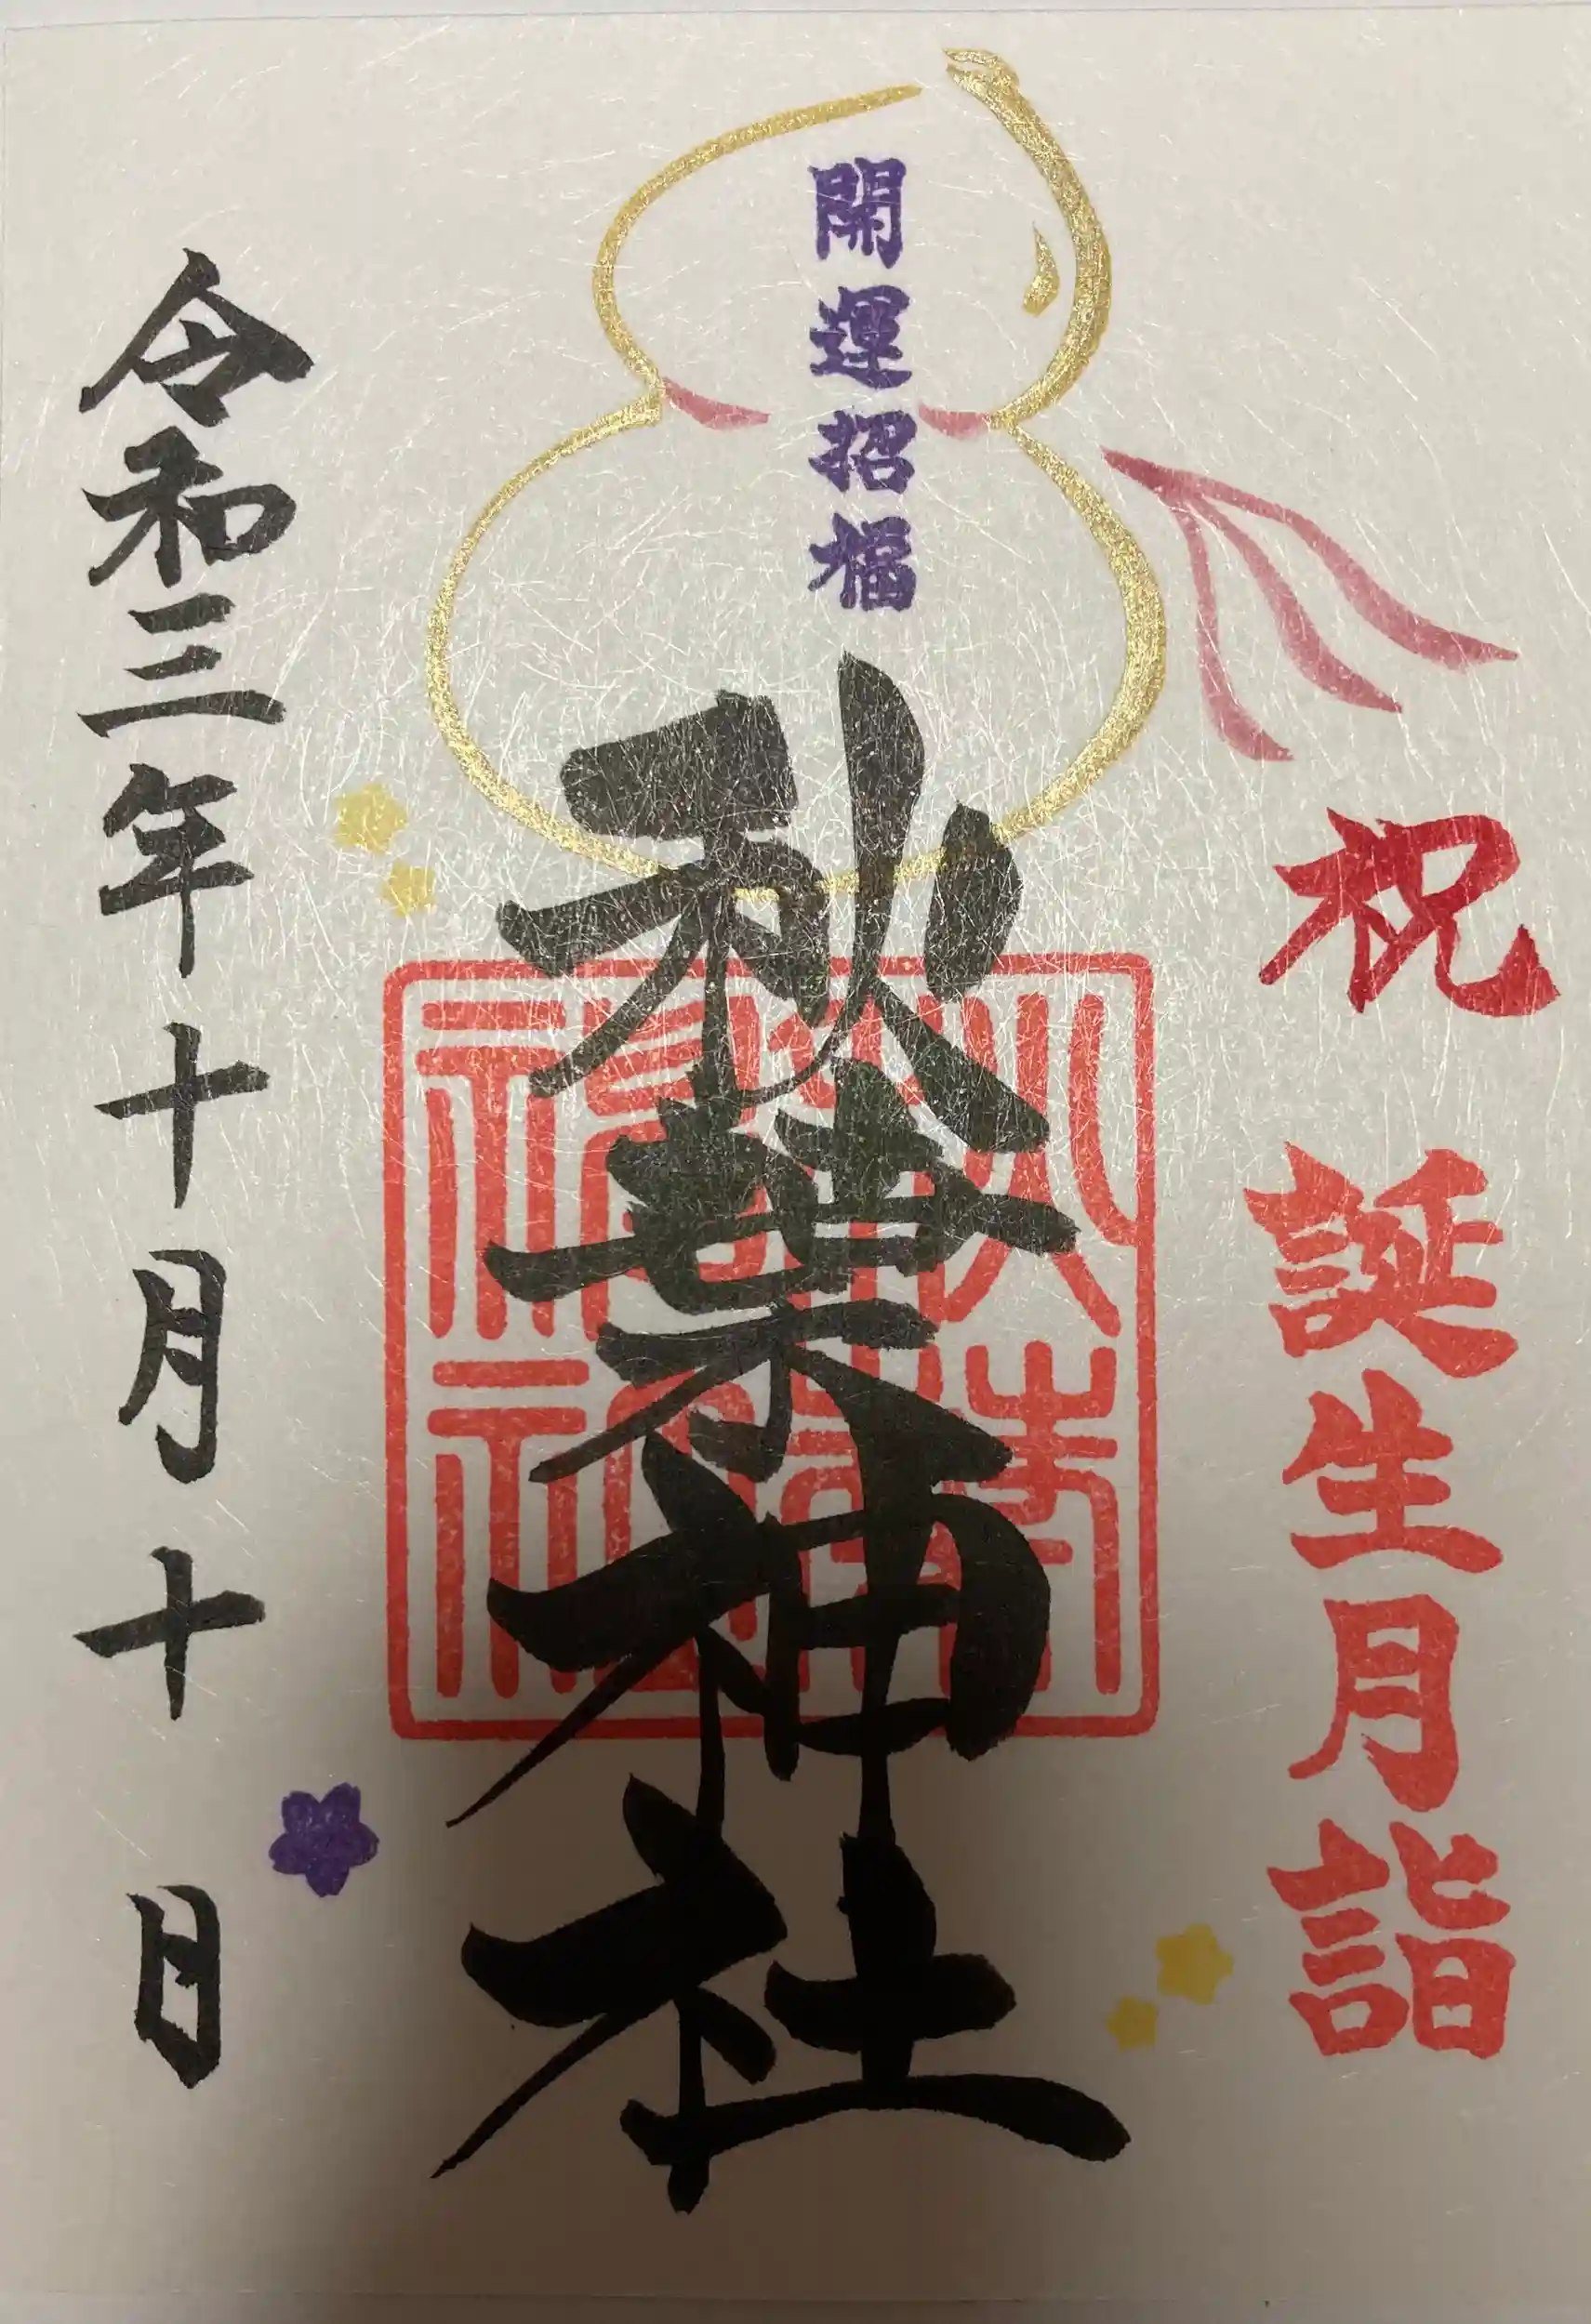 祝 誕生月詣
開運招福
秋葉神社
令和三年十月十日